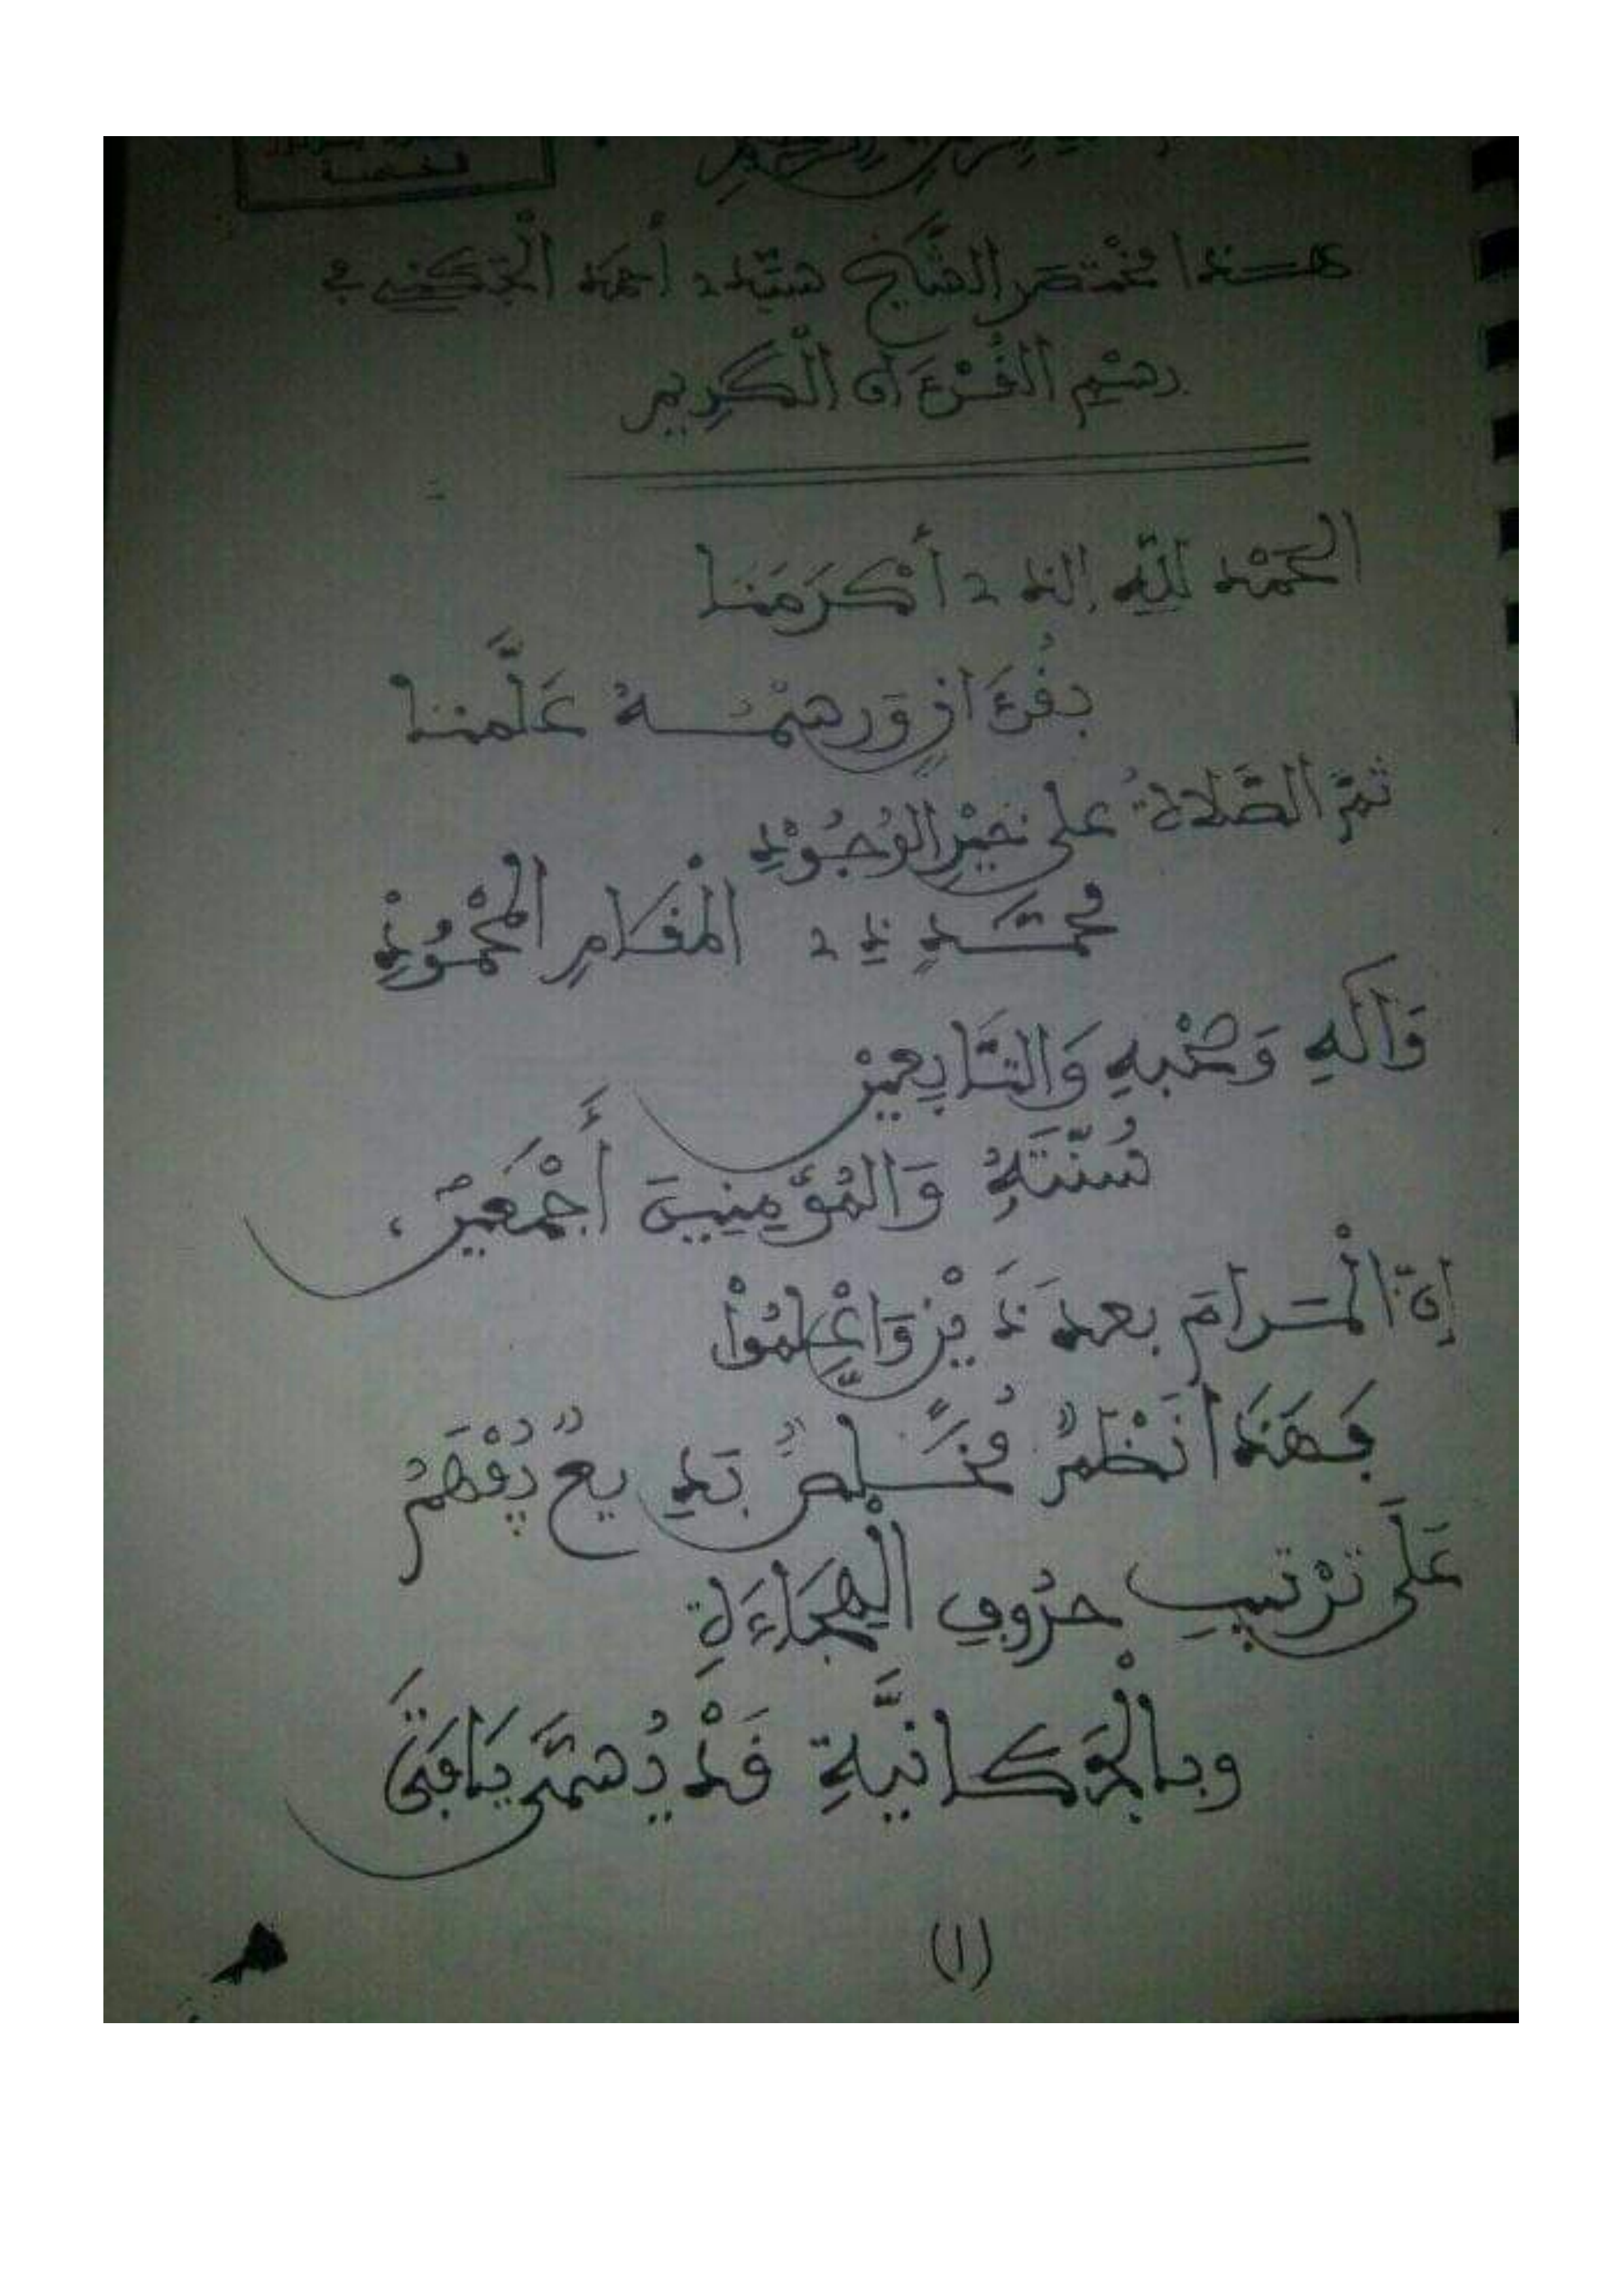 الرحمن الرحيم
الخمسة
هـذا مختصر الشيخ سيدي أحمد الجكني في
رسم القرءان الكريم
الحمد لله الذي أكرمنا
بقرءانٍ ورسمه علّمنا
ثم الصّلاة على خير الوجود
محمّد ذي المقام المحمود
وَآله وَصحبه وَالتّابعين
سُنّته وَالمؤمنين أجمعين،
إنّ المرام بعد ذين وَاعلموا
فهذا نظم مخلص بديع يفهم
على ترتيب حروف الهجاءة
وبالجكانيّة قد يسمّى يافتى
(١)